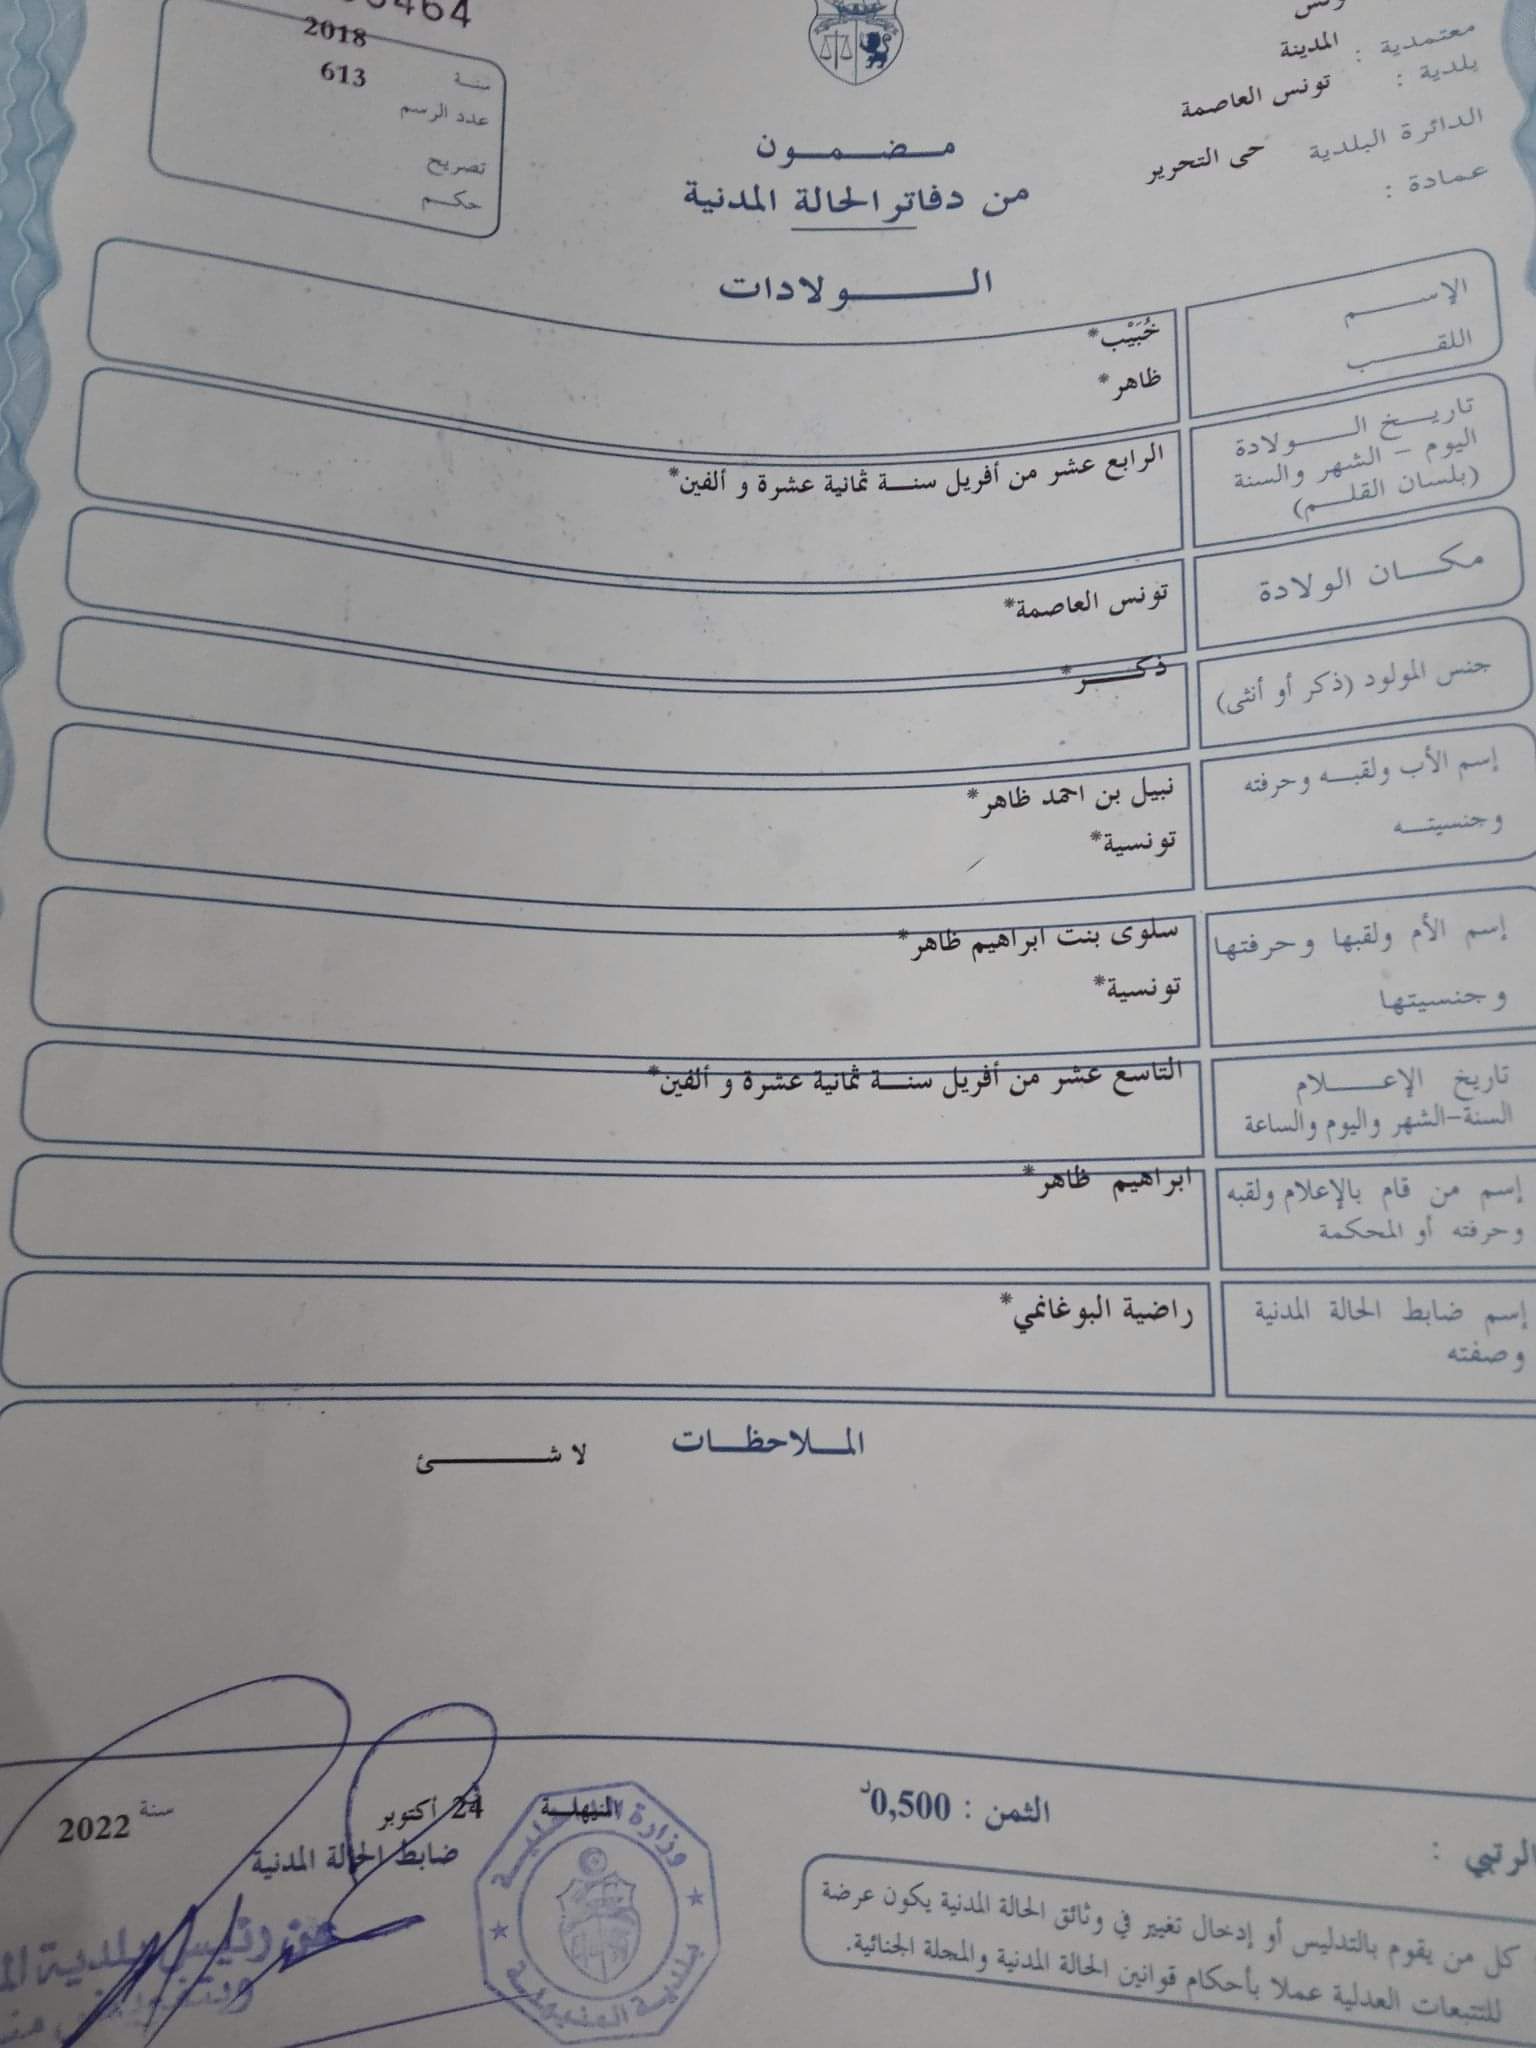 5464
2018
سنة
613
عدد الرسم
تصريح
حكم
تونس
معتمدية : المدينة
بلدية : تونس العاصمة
الدائرة البلدية حى التحرير
عمادة :
مضمون
من دفاتر الحالة المدنية
الولادات
الإسم خُبَيْب*
اللقب ظاهر*
تاريخ الولادة
اليوم - الشهر والسنة
(بلسان القلم)
الرابع عشر من أفريل سنة ثمانية عشرة و ألفين*
مكان الولادة تونس العاصمة*
جنس المولود (ذكر أو أنثى) ذكر*
إسم الأب ولقبه وحرفته نبيل بن احمد ظاهر*
وجنسيته تونسية*
إسم الأم ولقبها وحرفتها سلوى بنت ابراهيم ظاهر*
وجنسيتها تونسية*
تاريخ الإعلام التاسع عشر من أفريل سنة ثمانية عشرة و ألفين*
السنة-الشهر واليوم والساعة
إسم من قام بالإعلام ولقبه ابراهيم ظاهر*
وحرفته أو المحكمة
إسم ضابط الحالة المدنية راضية البوغانمي*
وصفته
الملاحظات
لا شئ
الثمن : 0,500د
الرتبي :
24 أكتوبر سنة 2022
ضابط الحالة المدنية
عن رئيس بلدية
وزارة الداخلية
بلدية المنيهلة
كل من يقوم بالتدليس أو إدخال تغيير في وثائق الحالة المدنية يكون عرضة
للتتبعات العدلية عملا بأحكام قوانين الحالة المدنية والمجلة الجنائية.